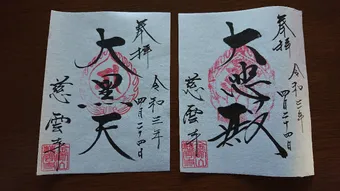 奉拝
大黒天
令和三年
四月二十四日
慈雲寺
奉拝
大悲殿
令和三年
四月二十四日
慈雲寺